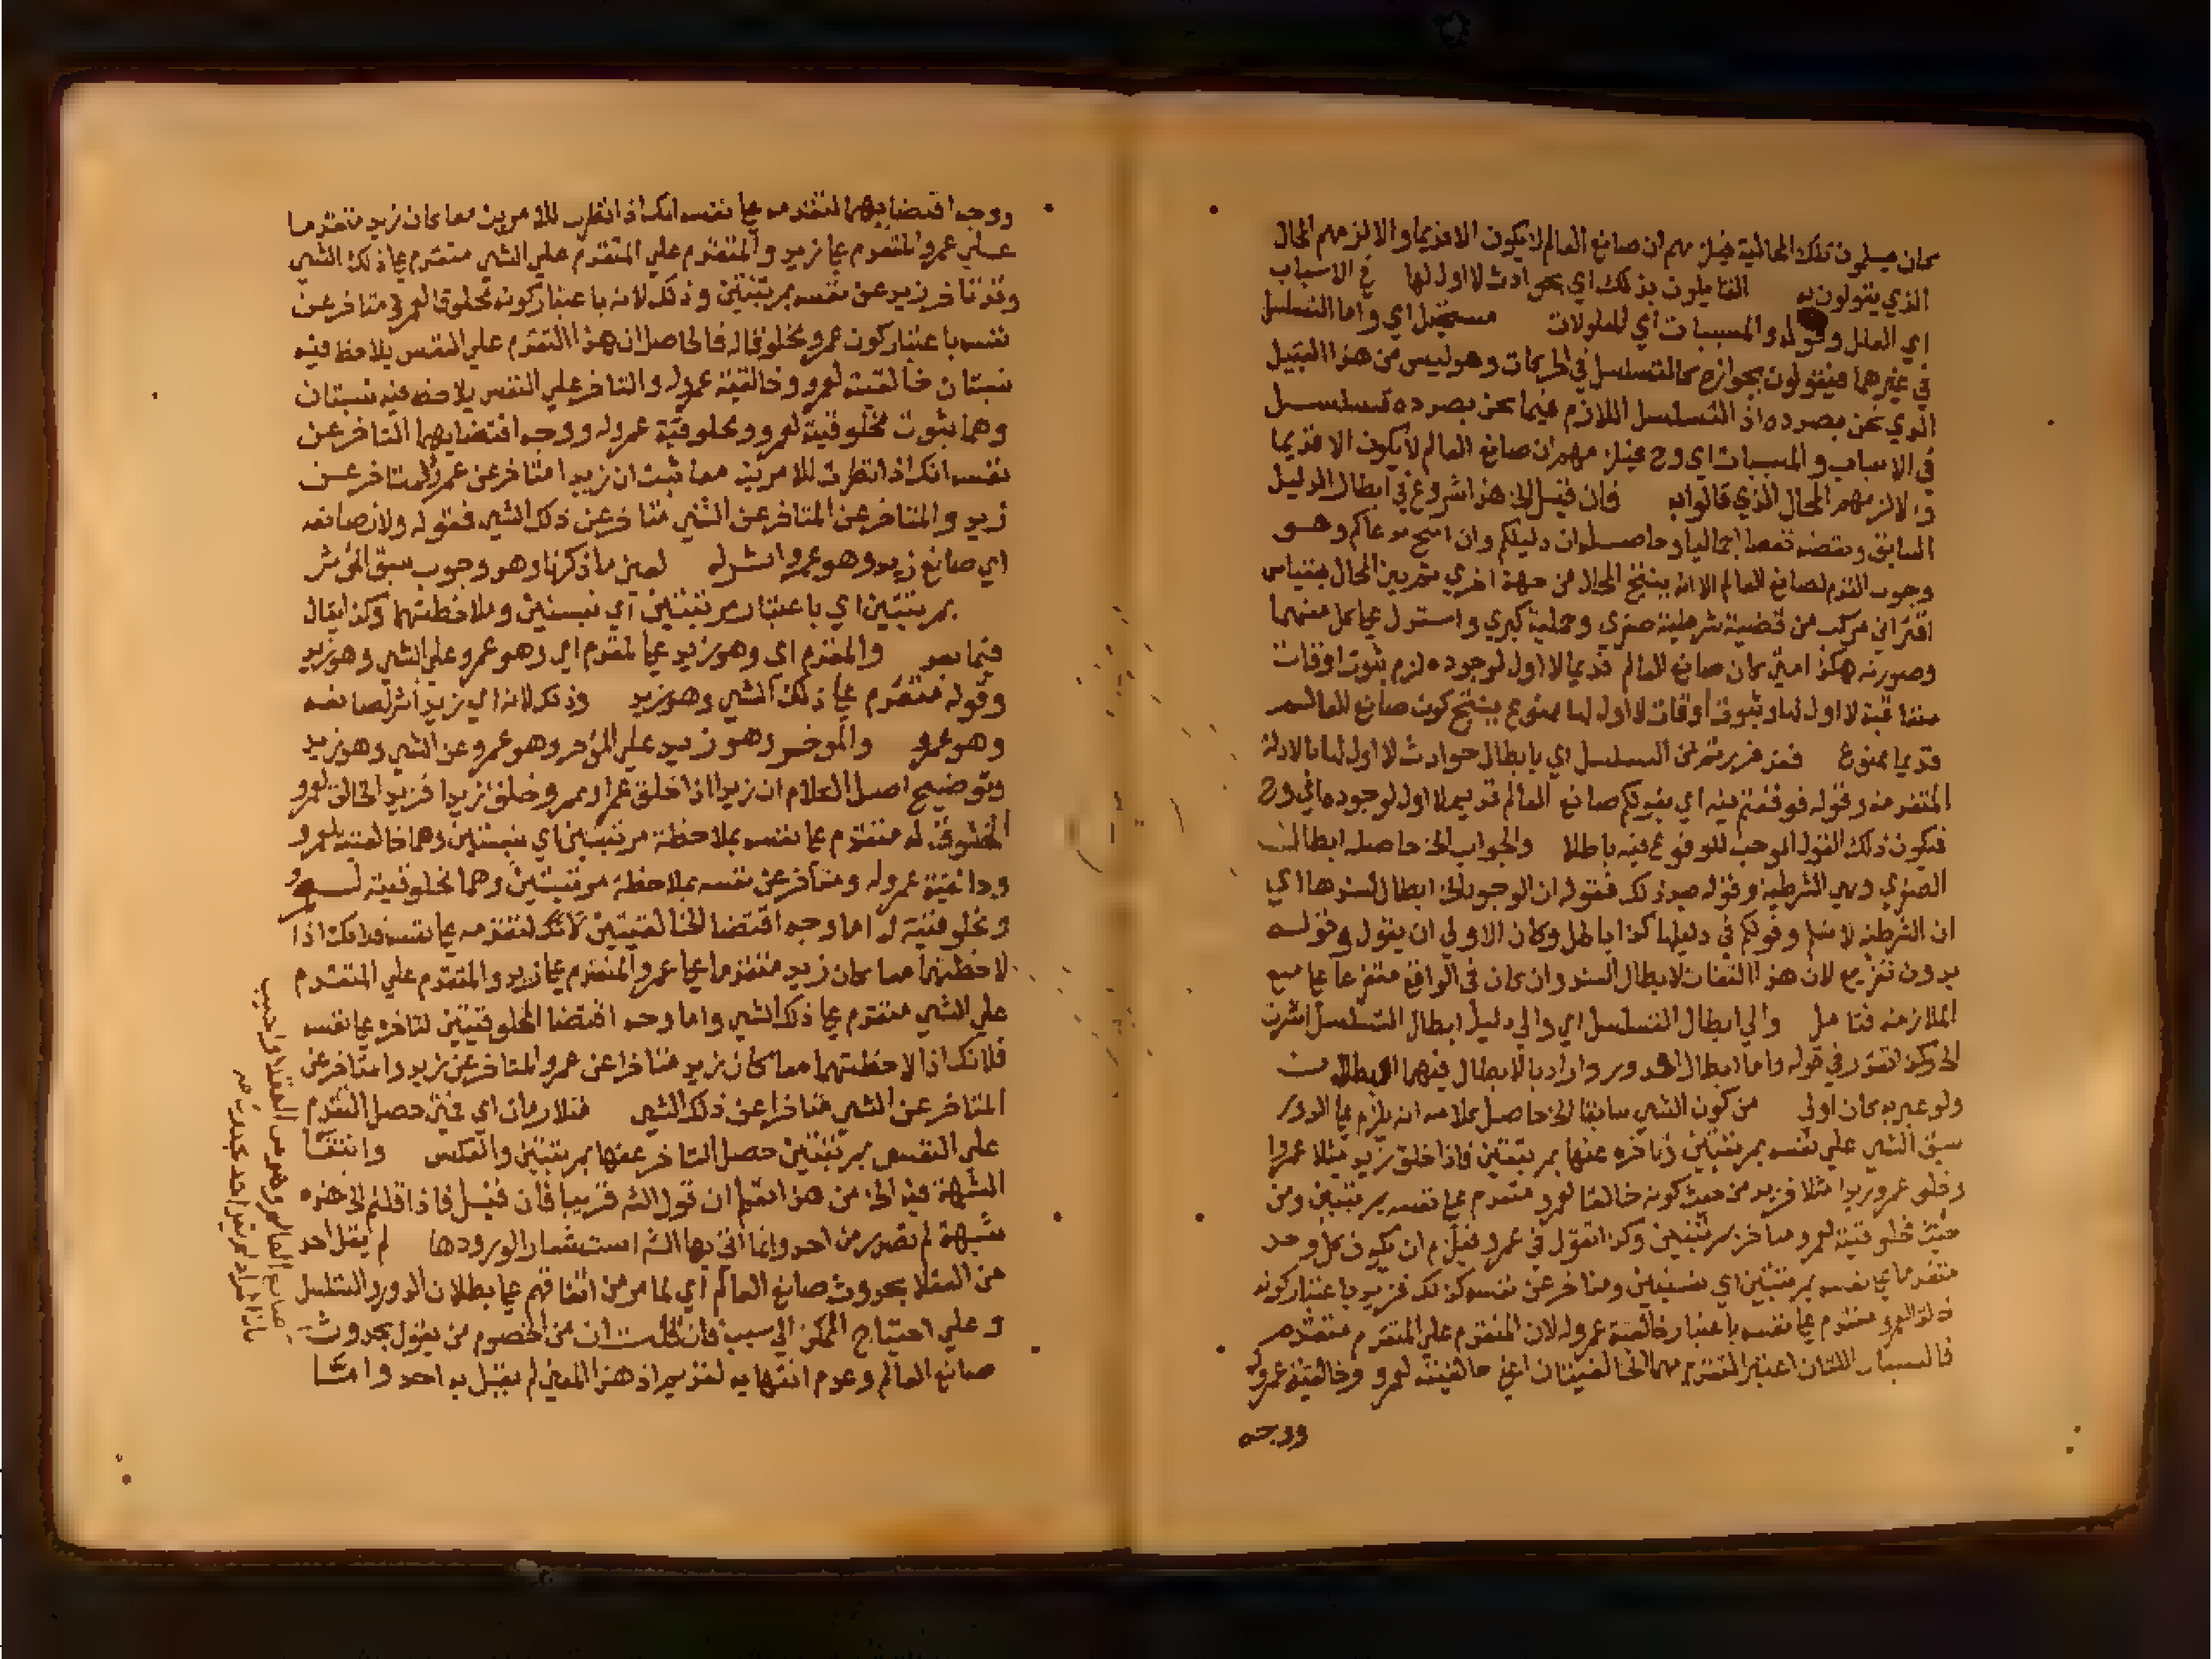 كان صانع العالم لا يكون الا قديما والا لزمهم المحال
الذي يقولون به القايلون بذلك اي بحوادث لا اول لها في الاسباب
اي العلل وقوله والمسببات اي المعلولات مستحيل اي واما التسلسل
في غيرهما فيقولون بجوازه كالتسلسل في الحركات وهو ليس من هذا القبيل
الذي نحن بصدده اذ التسلسل اللازم فيما نحن بصدده تسلسل
في الاسباب والمسببات اي وح فيلزمهم ان صانع العالم لا يكون الا قديما
والا لزمهم المحال الذي قالوا به فان قيل الخ هذا شروع في ابطال الدليل
السابق ونقضه نقضا اجماليا وحاصله ان دليلكم وان انتج مدعاكم وهو
وجوب القدم لصانع العالم الا انه ينتج المحال من جهة اخري تقرير المحال بقياس
اقتراني مركب من قضية شرطية صغري وحملية كبري واستدل علي كل منهما
وصورته هكذا متي كان صانع العالم قديما لا اول لوجوده لزم ثبوت اوقات
متعاقبة لا اول لها وثبوت اوقات لا اول لها ممنوع ينتج كون صانع العالم
قديما ممنوع فقد فررتم من التسلسل اي بابطال حوادث لا اول لها بالادلة
المتقدمة وقوله فوقعتم فيه اي بقولكم صانع العالم قديم لا اول لوجوده اي وح
فيكون ذلك القول الموجب للوقوع فيه باطلا والجواب الخ حاصله ابطال
الصغري وهي الشرطية وقوله فقوله ان الوجود الخ ابطال لسندها اي
ان الشرطية لا تسلم وقولكم في دليلها كذا باطل وكان الاولي ان يقول وقوله
بدون تفريع لان هذا التفات لابطال السند وان كان في الواقع متفرعا علي منع
الملازمة فتامل والي ابطال التسلسل اي والي دليل ابطال التسلسل اشرت
الخ وكذا تقول في قوله واما ابطال الدور واراد بالابطال فيهما البطلان
ولو عبر به كان اولي من كون الشي سابقا الخ حاصل كلامه انه يلزم علي الدور
سبق الشي علي نفسه بمرتبتين وتاخره عنها بمرتبتين فاذا خلق زيد مثلا عمروا
وخلق عمرو زيدا مثلا فزيد من حيث كونه خالقا لعمرو متقدم علي نفسه بمرتبتين ومن
حيث مخلوقيته لعمرو متاخر بمرتبتين وكذا تقول في عمرو فيلزم ان يكون كل واحد
متقدما علي نفسه بمرتبتين اي بنسبتين ومتاخر عن نفسه كذلك فزيد باعتبار كونه
خالقا لعمرو متقدم علي نفسه باعتبار خالقية عمرو له لان المتقدم علي المتقدم متقدم
فالنسبتان اللتان اعتبر التقدم بهما الخالقيتان اعني خالقيته لعمرو وخالقية عمرو له
ووجه
ووجه اقتضايهما لتقدمه علي نفسه انك اذا نظرت للامرين معا كان زيد متقدما
علي عمرو المتقدم علي زيد والمتقدم علي المتقدم علي الشي متقدم علي ذلك الشي
وقد تاخر زيد عن نفسه بمرتبتين وذلك لانه باعتبار كونه مخلوقا لعمرو متاخر عن
نفسه باعتبار كون عمرو مخلوقا له فالحاصل ان هذا التقدم علي النفس يلاحظ فيه
نسبتان خالقيته لعمرو وخالقية عمرو له والتاخر علي النفس يلاحظ فيه نسبتان
وهما ثبوت مخلوقيته لعمرو ومخلوقية عمرو له ووجه اقتضايهما التاخر عن
نفسه انك اذا نظرت للامرين معا ثبت ان زيدا متاخر عن عمرو المتاخر عن
زيد والمتاخر عن المتاخر عن الشي متاخر عن ذلك الشي فقوله ولان صانعه
اي صانع زيد وهو عمرو اثر له لعين ما ذكرنا وهو وجوب سبق المؤثر
بمرتبتين اي باعتبار مرتبتين اي نسبتين وملاحظتهما وكذا يقال
فيما بعد والمتقدم اي وهو زيد علي المتقدم اي وهو عمرو علي الشي وهو زيد
وقوله متقدم علي ذلك الشي وهو زيد وذلك لانه اي زيد اثر لصانعه
وهو عمرو والموخر وهو زيد علي المؤخر وهو عمرو عن الشي وهو زيد
وتوضيح اصل الكلام ان زيدا اذا خلق عمرا وعمرو خلق زيدا فزيد الخالق لعمرو
المخلوق له متقدم علي نفسه بملاحظة مرتبتين اي نسبتين وهما خالقيته لعمرو
وخالقية عمرو له ومتأخر عن نفسه بملاحظة مرتبتين وهما مخلوقيته لعمرو
ومخلوقيته له اما وجه اقتضا الخالقيتين لتقدمه علي نفسه فلانك اذا
لاحظتهما معا كان زيد متقدما علي عمرو المتقدم علي زيد والمتقدم علي المتقدم
علي الشي متقدم علي ذلك الشي واما وجه اقتضا المخلوقيتين لتاخره علي نفسه
فلانك اذا لاحظتهما معا كان زيد متاخرا عن عمرو المتاخر عن زيد والمتاخر عن
المتاخر عن الشي متاخرا عن ذلك الشي متلازمان اي فمتي حصل التقدم
علي النفس بمرتبتين حصل التاخر عنها بمرتبتين والعكس وانتفا
الشبهة فيه الخ من هذا تعلم ان قول الش قريبا فان قيل فاذا قلتم الخ هذه
شبهة لم تصدر من احد وانما اتي بها الش استشعارا لورودها لم يقل احد
من العقلا بحدوث صانع العالم اي لما مر من اتفاقهم علي بطلان الدور والتسلسل
وعلي احتياج الممكن الي سبب فان قلت ان من الخصوم من يقول بحدوث
صانع العالم وعدم انتهايه لقديم اذ هذا المعني لم يقبل به احد وامتا